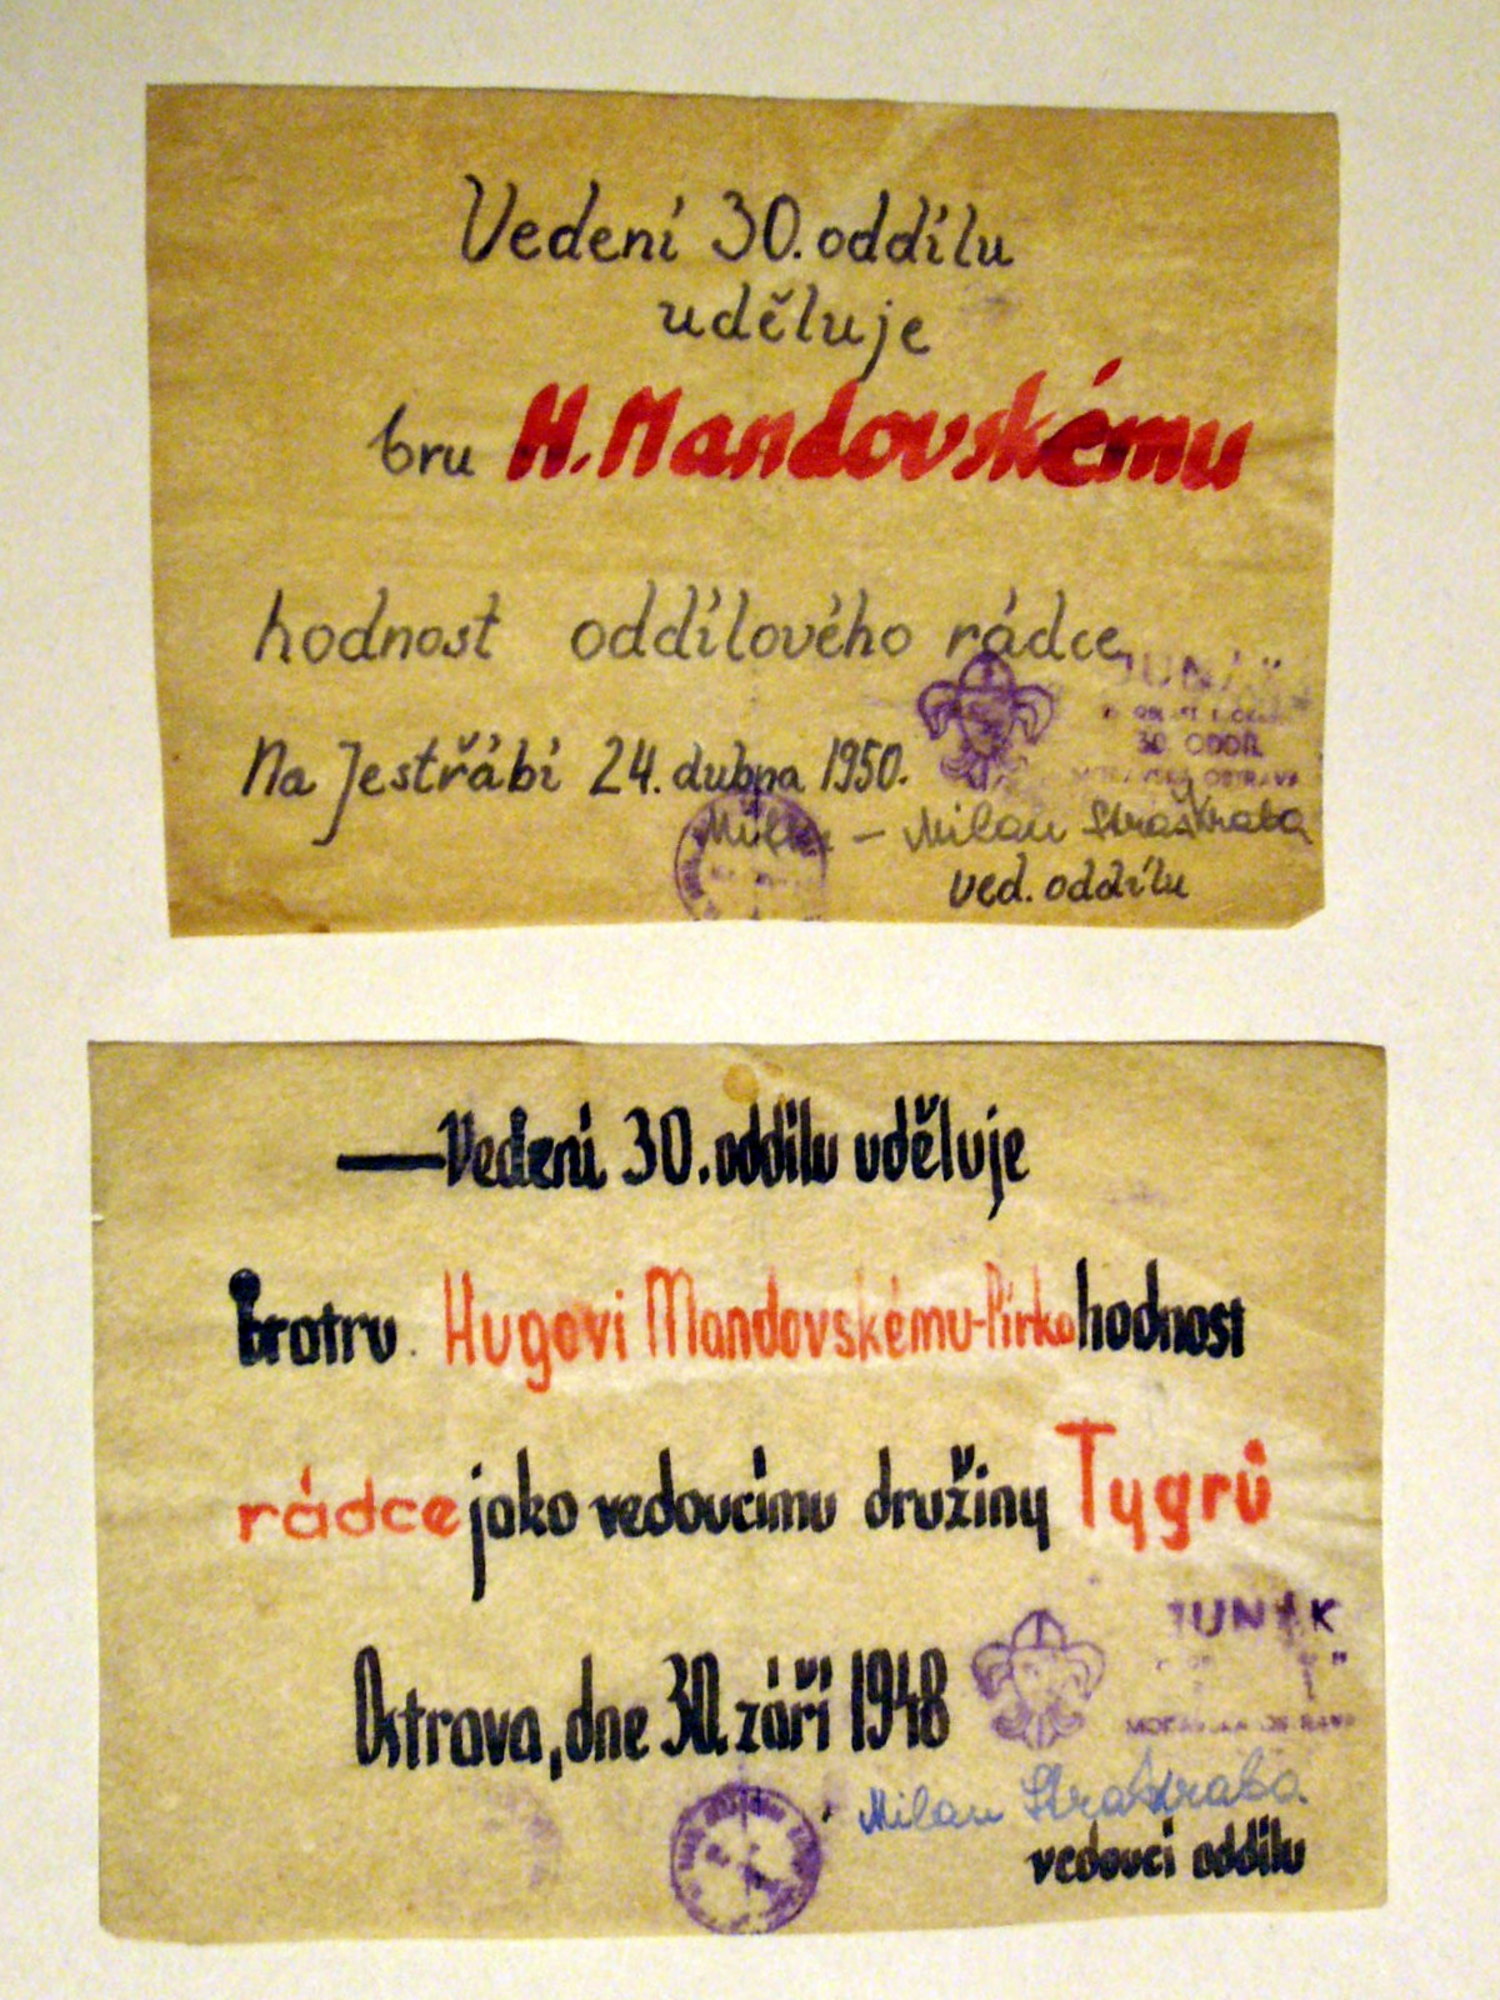 Vedení 30. oddílu
uděluje
bru H. Mandovskému
hodnost oddílového rádce
JUNÁK
30. ODDÍL
MORAVSKÁ OSTRAVA
Na Jestřábí 24. dubna 1950.
– Milan Straškraba
ved. oddílu
—Vedení 30. oddílu uděluje
bratru Hugovi Mandovskému-Pírko hodnost
rádce jako vedoucímu družiny Tygrů
JUNÁK
MORAVSKÁ OSTRAVA
Ostrava, dne 30. září 1948
Milan Straškraba
vedoucí oddílu